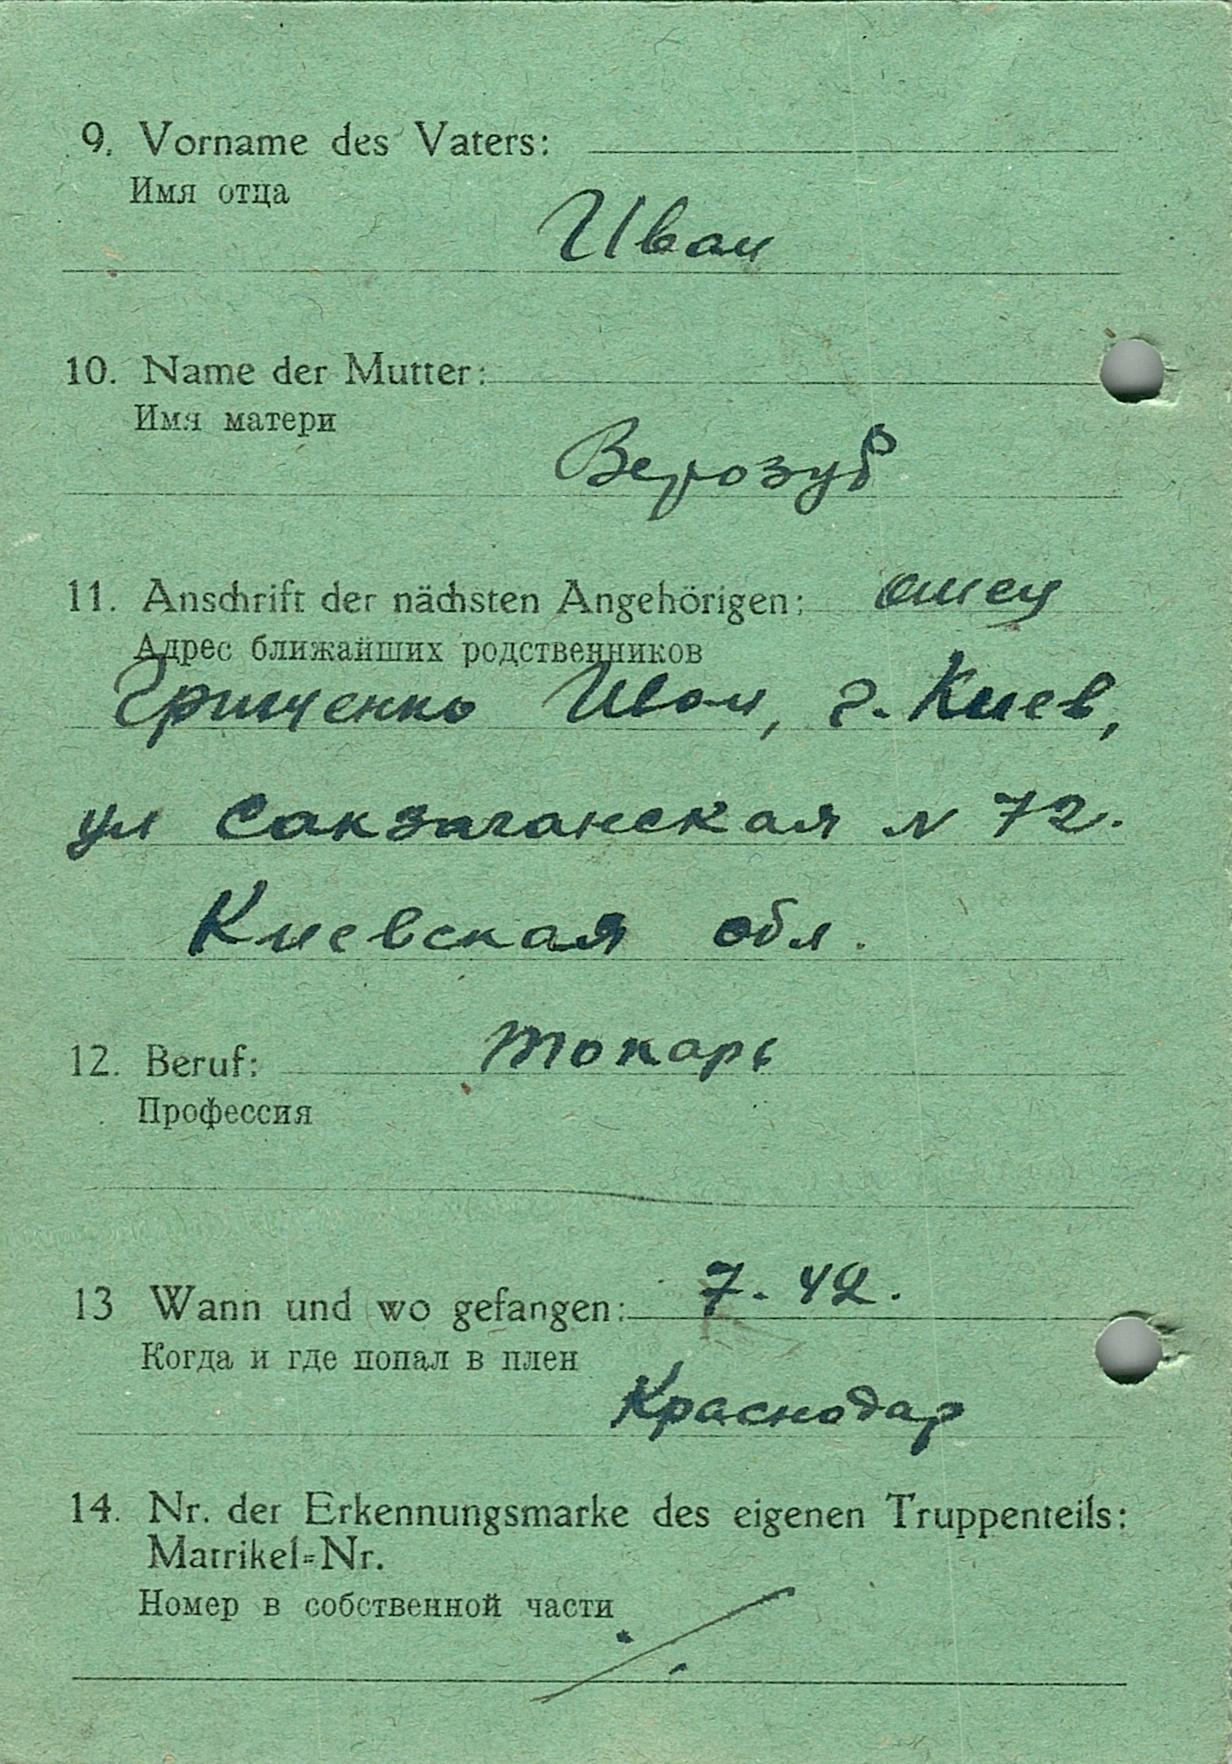 9. Vorname des Vaters:
Имя отца
Иван
10. Name der Mutter:
Имя матери
Верозуб
11. Anschrift der nächsten Angehörigen: отец
Адрес ближайших родственников
Гринченко Иван, г. Киев,
ул Саксаганская N 72.
Киевская обл.
12. Beruf: токарь
Профессия
13 Wann und wo gefangen: 7. 42.
Когда и где попал в плен
Краснодар
14. Nr. der Erkennungsmarke des eigenen Truppenteils:
Matrikel=Nr.
Номер в собственной части